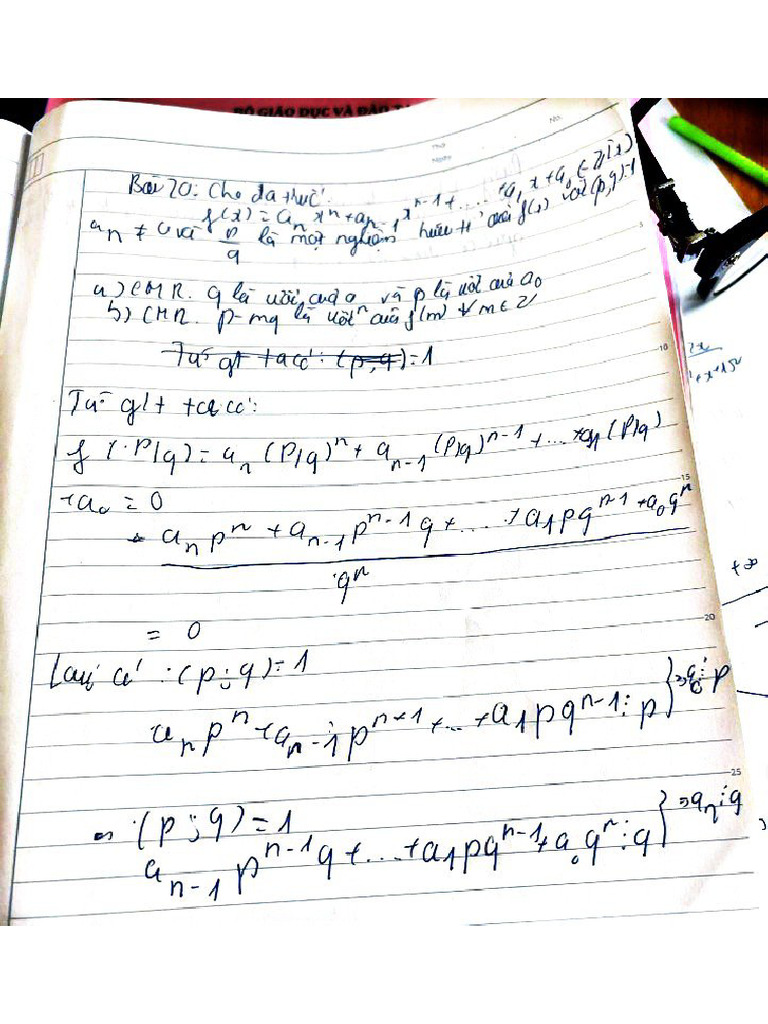 BỘ GIÁO DỤC VÀ ĐÀO TẠ
Thứ
No.
Ngày
Bài 20: Cho đa thức
f(x) = aₙxⁿ + aₙ₋₁xⁿ⁻¹ + .... + a₁x + a₀ ∈ Z[x]
aₙ ≠ 0 và p/q là một nghiệm hữu tỉ của f(x) với (p,q)=1
a) CMR. q là ước của aₙ và p là ước của a₀
b) CMR. p-mq là ước của f(m) ∀ m ∈ Z
Từ gt ta có: (p,q)=1
Từ glt ta có:
f(p/q) = aₙ(p/q)ⁿ + aₙ₋₁(p/q)ⁿ⁻¹ + ... + a₁(p/q)
+a₀ = 0
aₙpⁿ + aₙ₋₁pⁿ⁻¹q + .... + a₁pqⁿ⁻¹ + a₀qⁿ
qⁿ
= 0
Lại có : (p;q)=1
aₙpⁿ + aₙ₋₁pⁿ⁺¹ + ... + a₁pqⁿ⁻¹ ⋮ p } => a₀ ⋮ p
(p;q)=1
aₙ₋₁pⁿ⁻¹q + ... + a₁pqⁿ⁻¹ + a₀qⁿ ⋮ q } => aₙ ⋮ q
5
10
15
20
25
2x
+∞